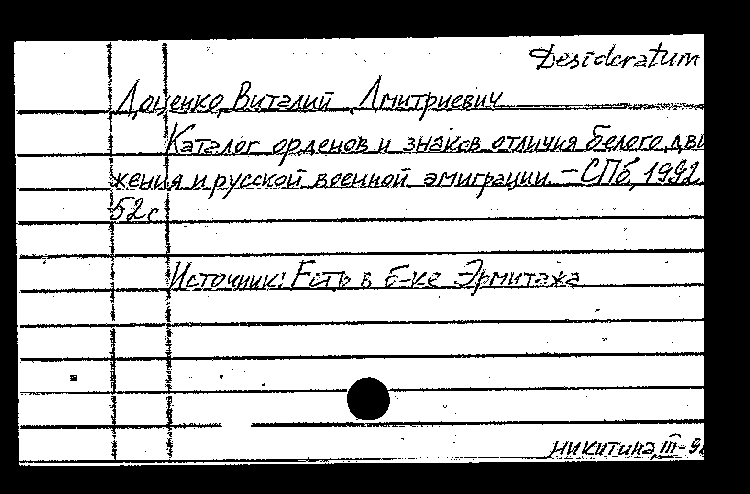 Desideratum
Доценко, Виталий Дмитриевич
Каталог орденов и знаков отличия белого дви
жения и русской военной эмиграции. – СПб, 1992
52с
Источник: Есть в б-ке Эрмитажа
Никитина, III-9